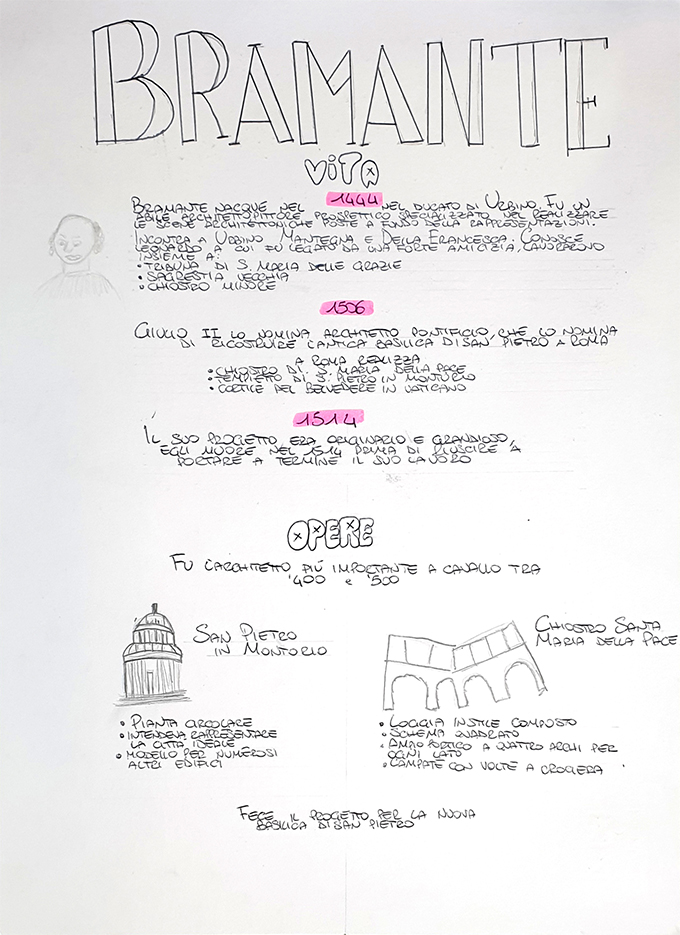 BRAMANTE
VITA
BRAMANTE NACQUE NEL 1444 NEL DUCATO DI URBINO. FU UN
ABILE ARCHITETTO, PITTORE PROSPETTICO SPECIALIZZATO NEL REALIZZARE
LE SCENE ARCHITETTONICHE POSTE A FONDO DELLA RAPPRESENTAZIONI.
INCONTRA A URBINO MANTEGNA E DELLA FRANCESCA. CONOSCE
LEONARDO A CUI FU LEGATO DA UNA FORTE AMICIZIA, LAVORARONO
INSIEME A:
• TRIBUNA DI S. MARIA DELLE GRAZIE
• SAGRESTIA VECCHIA
• CHIOSTRO MINORE
1506
GIULIO II LO NOMINA ARCHITETTO PONTIFICIO, CHE LO NOMINA
DI RICOSTRUIRE L'ANTICA BASILICA DI SAN PIETRO A ROMA
A ROMA REALIZZA
• CHIOSTRO DI S. MARIA DELLA PACE
• TEMPIETTO DI S. PIETRO IN MONTORIO
• CORTILE DEL BELVEDERE IN VATICANO
1514
IL SUO PROGETTO ERA ORIGINARIO E GRANDIOSO,
EGLI MUORE NEL 1514 PRIMA DI RIUSCIRE A
PORTARE A TERMINE IL SUO LAVORO
OPERE
FU L'ARCHITETTO PIÚ IMPORTANTE A CAVALLO TRA
'400 E '500
SAN PIETRO
IN MONTORIO
• PIANTA CIRCOLARE
• INTENDEVA RAPPRESENTARE
LA CITTÀ IDEALE
• MODELLO PER NUMEROSI
ALTRI EDIFICI
CHIOSTRO SANTA
MARIA DELLA PACE
• LOGGIA IN STILE COMPOSTO
• SCHEMA QUADRATO
• AMPIO PORTICO A QUATTRO ARCHI PER
OGNI LATO
• CAMPATE CON VOLTE A CROCIERA
FECE IL PROGETTO PER LA NUOVA
BASILICA DI SAN PIETRO